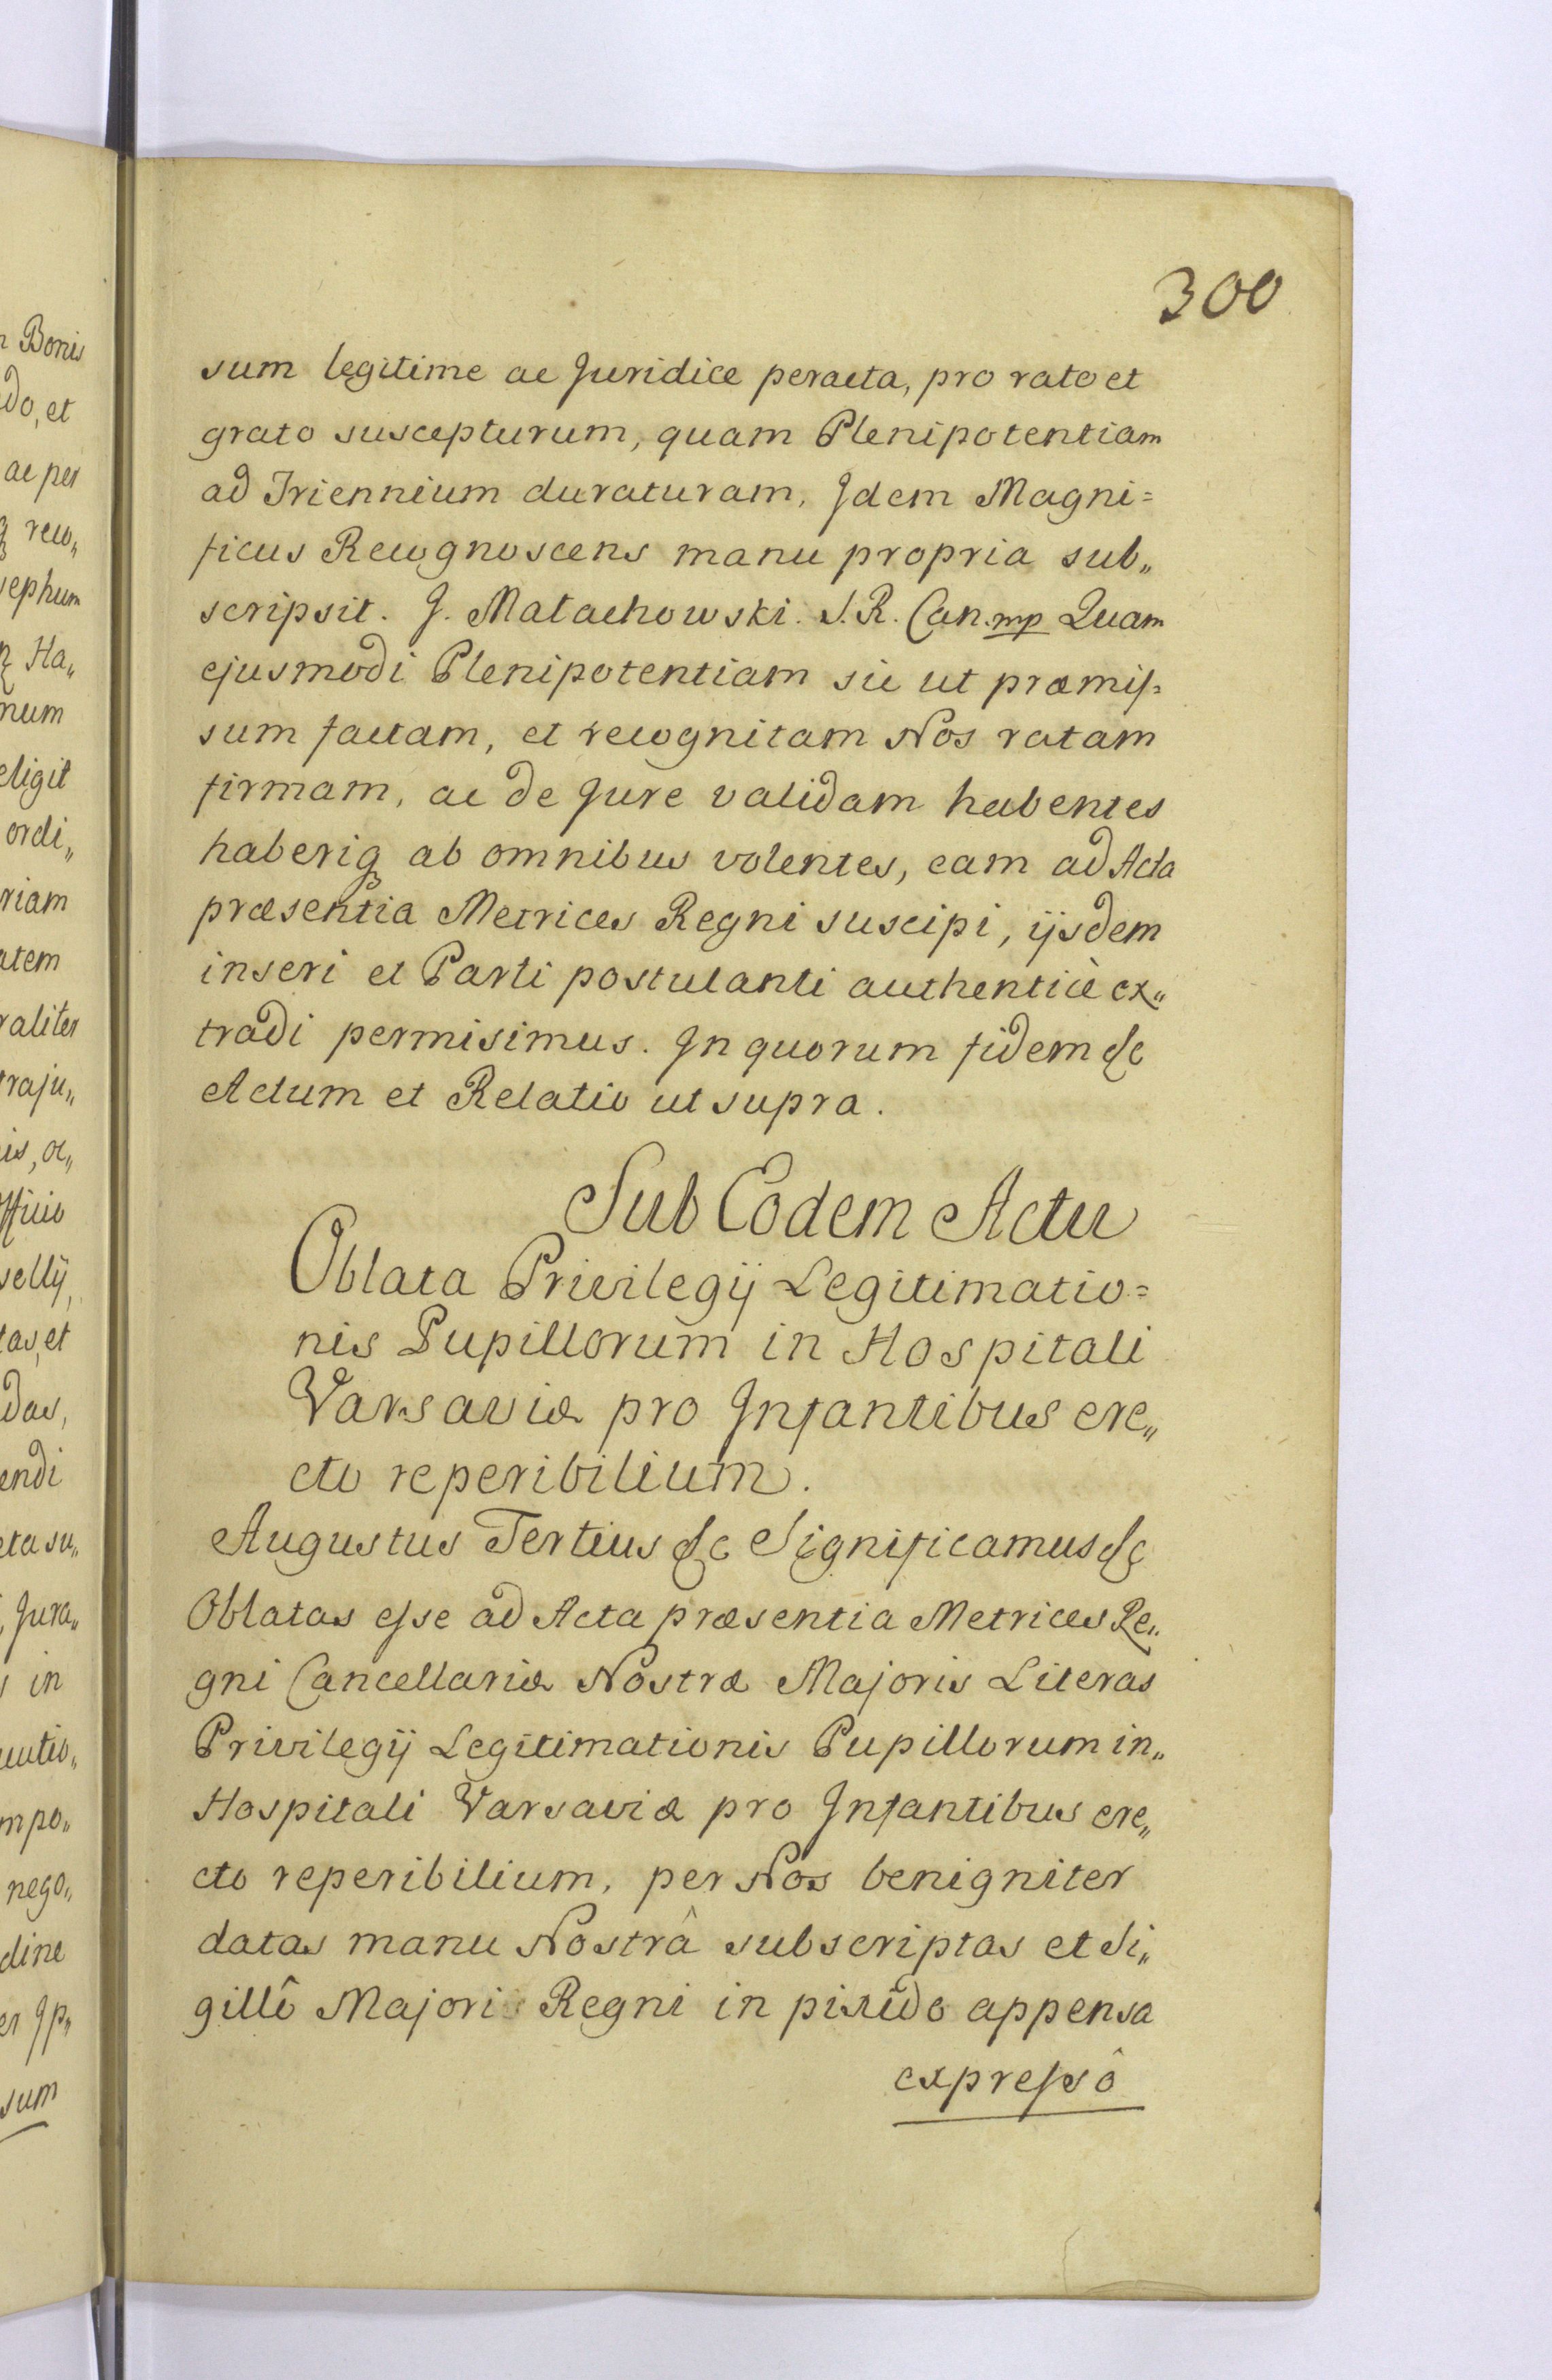 300
sum legitime ac Juridice peracta, pro rato et
grato suscepturum, quam Plenipotentiam
ad Triennium duraturam, Idem Magni=
ficus Recognoscens manu propria sub„
scripsit. J. Małachowski. S. R. Can. mp Quam
ejusmodi Plenipotentiam sic ut præmis=
sum factam, et recognitam Nos ratam
firmam, ac de Jure validam habentes
haberiq3 ab omnibus volentes, eam ad Acta
præsentia Metrices Regni suscipi, ijsdem
inseri et Parti postulanti authenticè ex„
tradi permisimus. In quorum fidem &c
Actum et Relatio ut supra.
Sub Eodem Actu
Oblata Privilegij Legitimatio=
nis Pupillorum in Hospitali
Varsaviæ pro Infantibus ere„
cto reperibilium.
Augustus Tertius &c Significamus &c
Oblatas esse ad Acta præsentia Metrices Re„
gni Cancellariæ Nostræ Majoris Literas
Privilegij Legitimationis Pupillorum in„
Hospitali Varsaviæ pro Infantibus ere„
cto reperibilium, per Nos benigniter
datas manu Nostrâ subscriptas et Si„
gillô Majoris Regni in pixide appensa
expressô
n Bonis
do, et
ac per
reco„
sephum
Ha„
num
eligit
ordi„
riam
atem
raliter
traju„
is, ac„
fficio
selly,
tas, et
das,
endi
cta su„
Jura„
s in
cutio„
mpo„
nego„
dine
er Ip„
sum